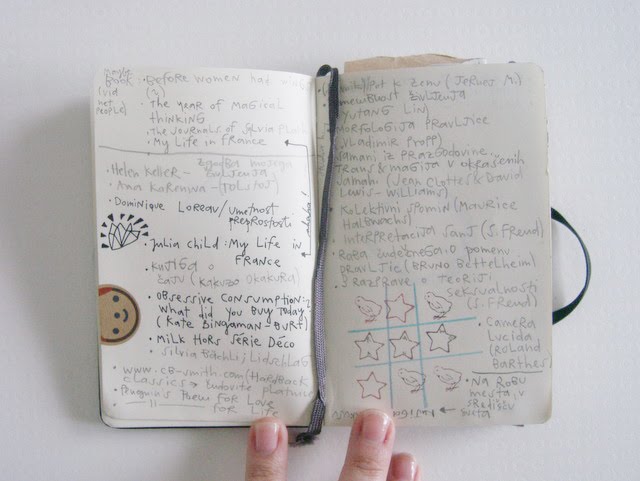 movie
book:
(vid
net
people)
• Before women had wings
(~)
• The year of magical
thinking
• The journals of Sylvia Plath
• My Life in France
zgodba mojega
• Helen Keller - življenja
• Ana Karenina - (TOLSTOJ)
• Dominique Loreau / umetnost
preprostosti
• Julia Child: My Life in
France
• knjiga o
čaju (Kakuzo Okakura)
• Obsessive Consumption:
what did you buy today?
(Kate Bingaman-Burt)
• Milk Hors Série Déco
• Silvia Bächli; Lidschlag
• www.cb-smith.com/Hardback
classics →
• Penguin's Poem for Love
—11— for Life
Pot k zenu (Jernej M.)
življenja
Lin
Morfologija pravljice
(Vladimir Propp)
Šamani iz prazgodovine
Trans & magija v okrašenih
jamah (Jean Clottes & David
Lewis-Williams)
• Kolektivni spomin (Maurice
Halbwachs)
• Interpretacija sanj (S. Freud)
• Raba čudežnega: O pomenu
pravljic (Bruno Bettelheim)
• 3 razprave o teoriji
seksualnosti
(S. Freud)
• Camera
Lucida
(Roland
Barthes)
• Na robu
mesta, v
središču
sveta